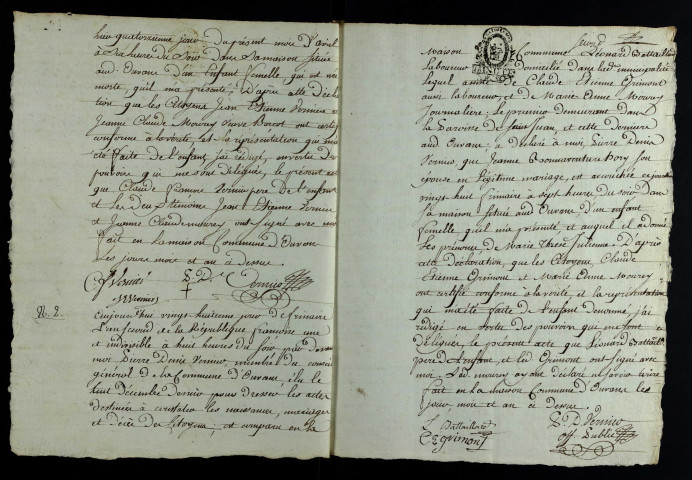 huit quatorzieme jour du présent mois d'avril
à heure du soir dans sa maison située
aud. Ouvans d'un Enfant femelle qui est né
morte, qu'il m'a présenté; D'apres cette décla
ration que les Citoyens Jean Etienne Vernier et
Jeanne Claude Mourey Veuve ont certifié
conforme à la vérité, et la représentation qui m'a
été faite de l'enfant, j'ai rédigé, en vertu des
pouvoirs qui me sont délégués, le présent acte
que Claude Vernier pere de l'enfant
et les deux témoins Jean Etienne Vernier
et Jeanne Claude Mourey ont signé avec moi
fait en la maison Commune d'Ouvans
les jours mois et an ci dessus
J Vernier P. D. Vernier
Vernier
N. 2.
Aujourd'hui vingt huitieme jour de frimaire
L'an second de la République françoise une
et indivisible à huit heures du soir par devant
moi Pierre Denis Vernier, membre du conseil
général de la Commune d'Ouvans, élu le
huit Décembre dernier pour dresser les actes
destinés à constater les naissances, mariages
et décès des Citoyens; est comparu en la
maison Commune Léonard Battaillard
Laboureur domicilié dans lad. municipalité
lequel assisté de Claude Etienne Grimont
aussi laboureur, et de Marie Anne Mourey
Journaliere; le premier demeurant dans
la Paroisse de Saint Juan, et cette derniere
aud. Ouvans; a déclaré à moi, Pierre Denis
Vernier, que Jeanne Bonnaventure Bory son
épouse en légitime mariage, est accouchée
vingt huit frimaire à sept heures du soir dans
sa maison située aud. Ouvans d'un enfant
femelle qu'il m'a présenté et auquel il a donné
les prénoms de Marie Therese D'après
cette déclaration, que les Citoyens Claude
Etienne Grimont et Marie Anne Mourey
ont certifié conforme à la vérité, et la représentation
qui m'a été faite de l'enfant dénommé, j'ai
rédigé en vertu des pouvoirs qui me sont
délégués, le présent acte que Léonard Battaillard
pere de l'enfant et led. Grimont ont signé avec
moi lad. Mourey ayant déclaré ne savoir écrire
Fait en la maison Commune d'Ouvans les
jour, mois et an ci dessus.
L Battaillard P. D. Vernier
C E grimont off. Public